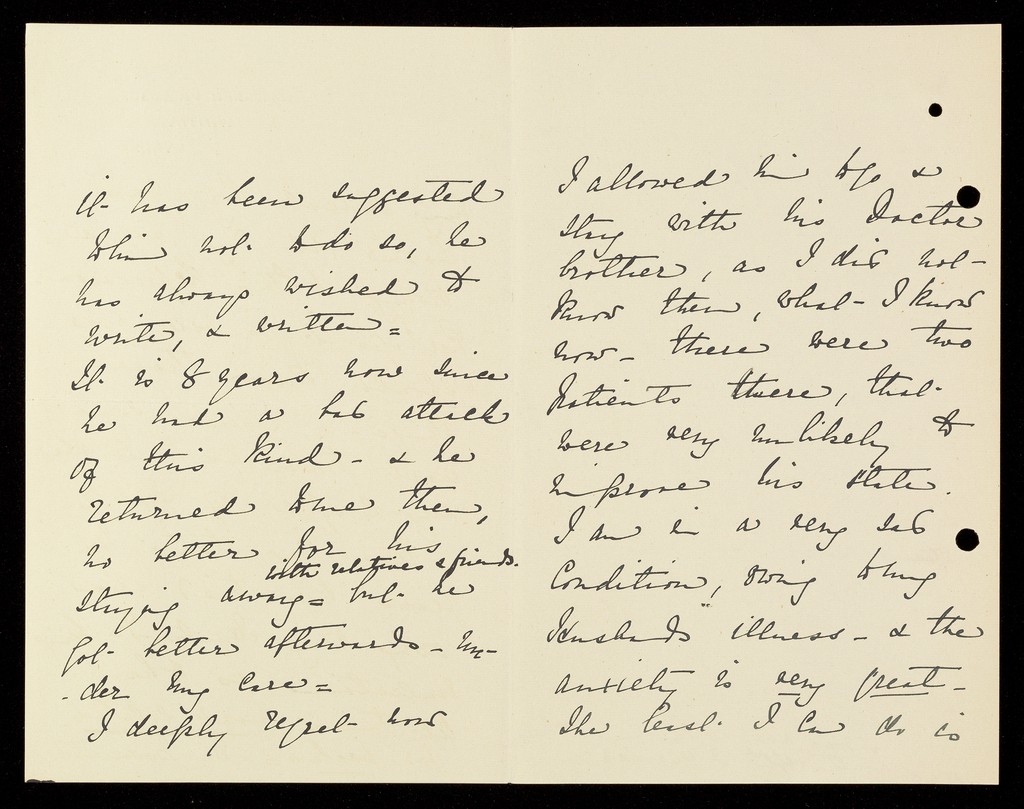 it has been suggested
to him not to do so, he
has always wished to
write, & written =
It is 8 years now since
he had a bad attack
of this kind - & he
returned to me then,
no better for his
with relatives & friends.
staying away = but he
got better afterwards - un-
-der my care =
I deeply regret now
I allowed him to go &
stay with his Doctor
brother, as I did not
know then, what I know
now - there were two
Patients there, that
were very unlikely to
improve his state.
I am in a very sad
Condition, owing to my
Husband's illness - & the
anxiety is very great -
The least I can do is